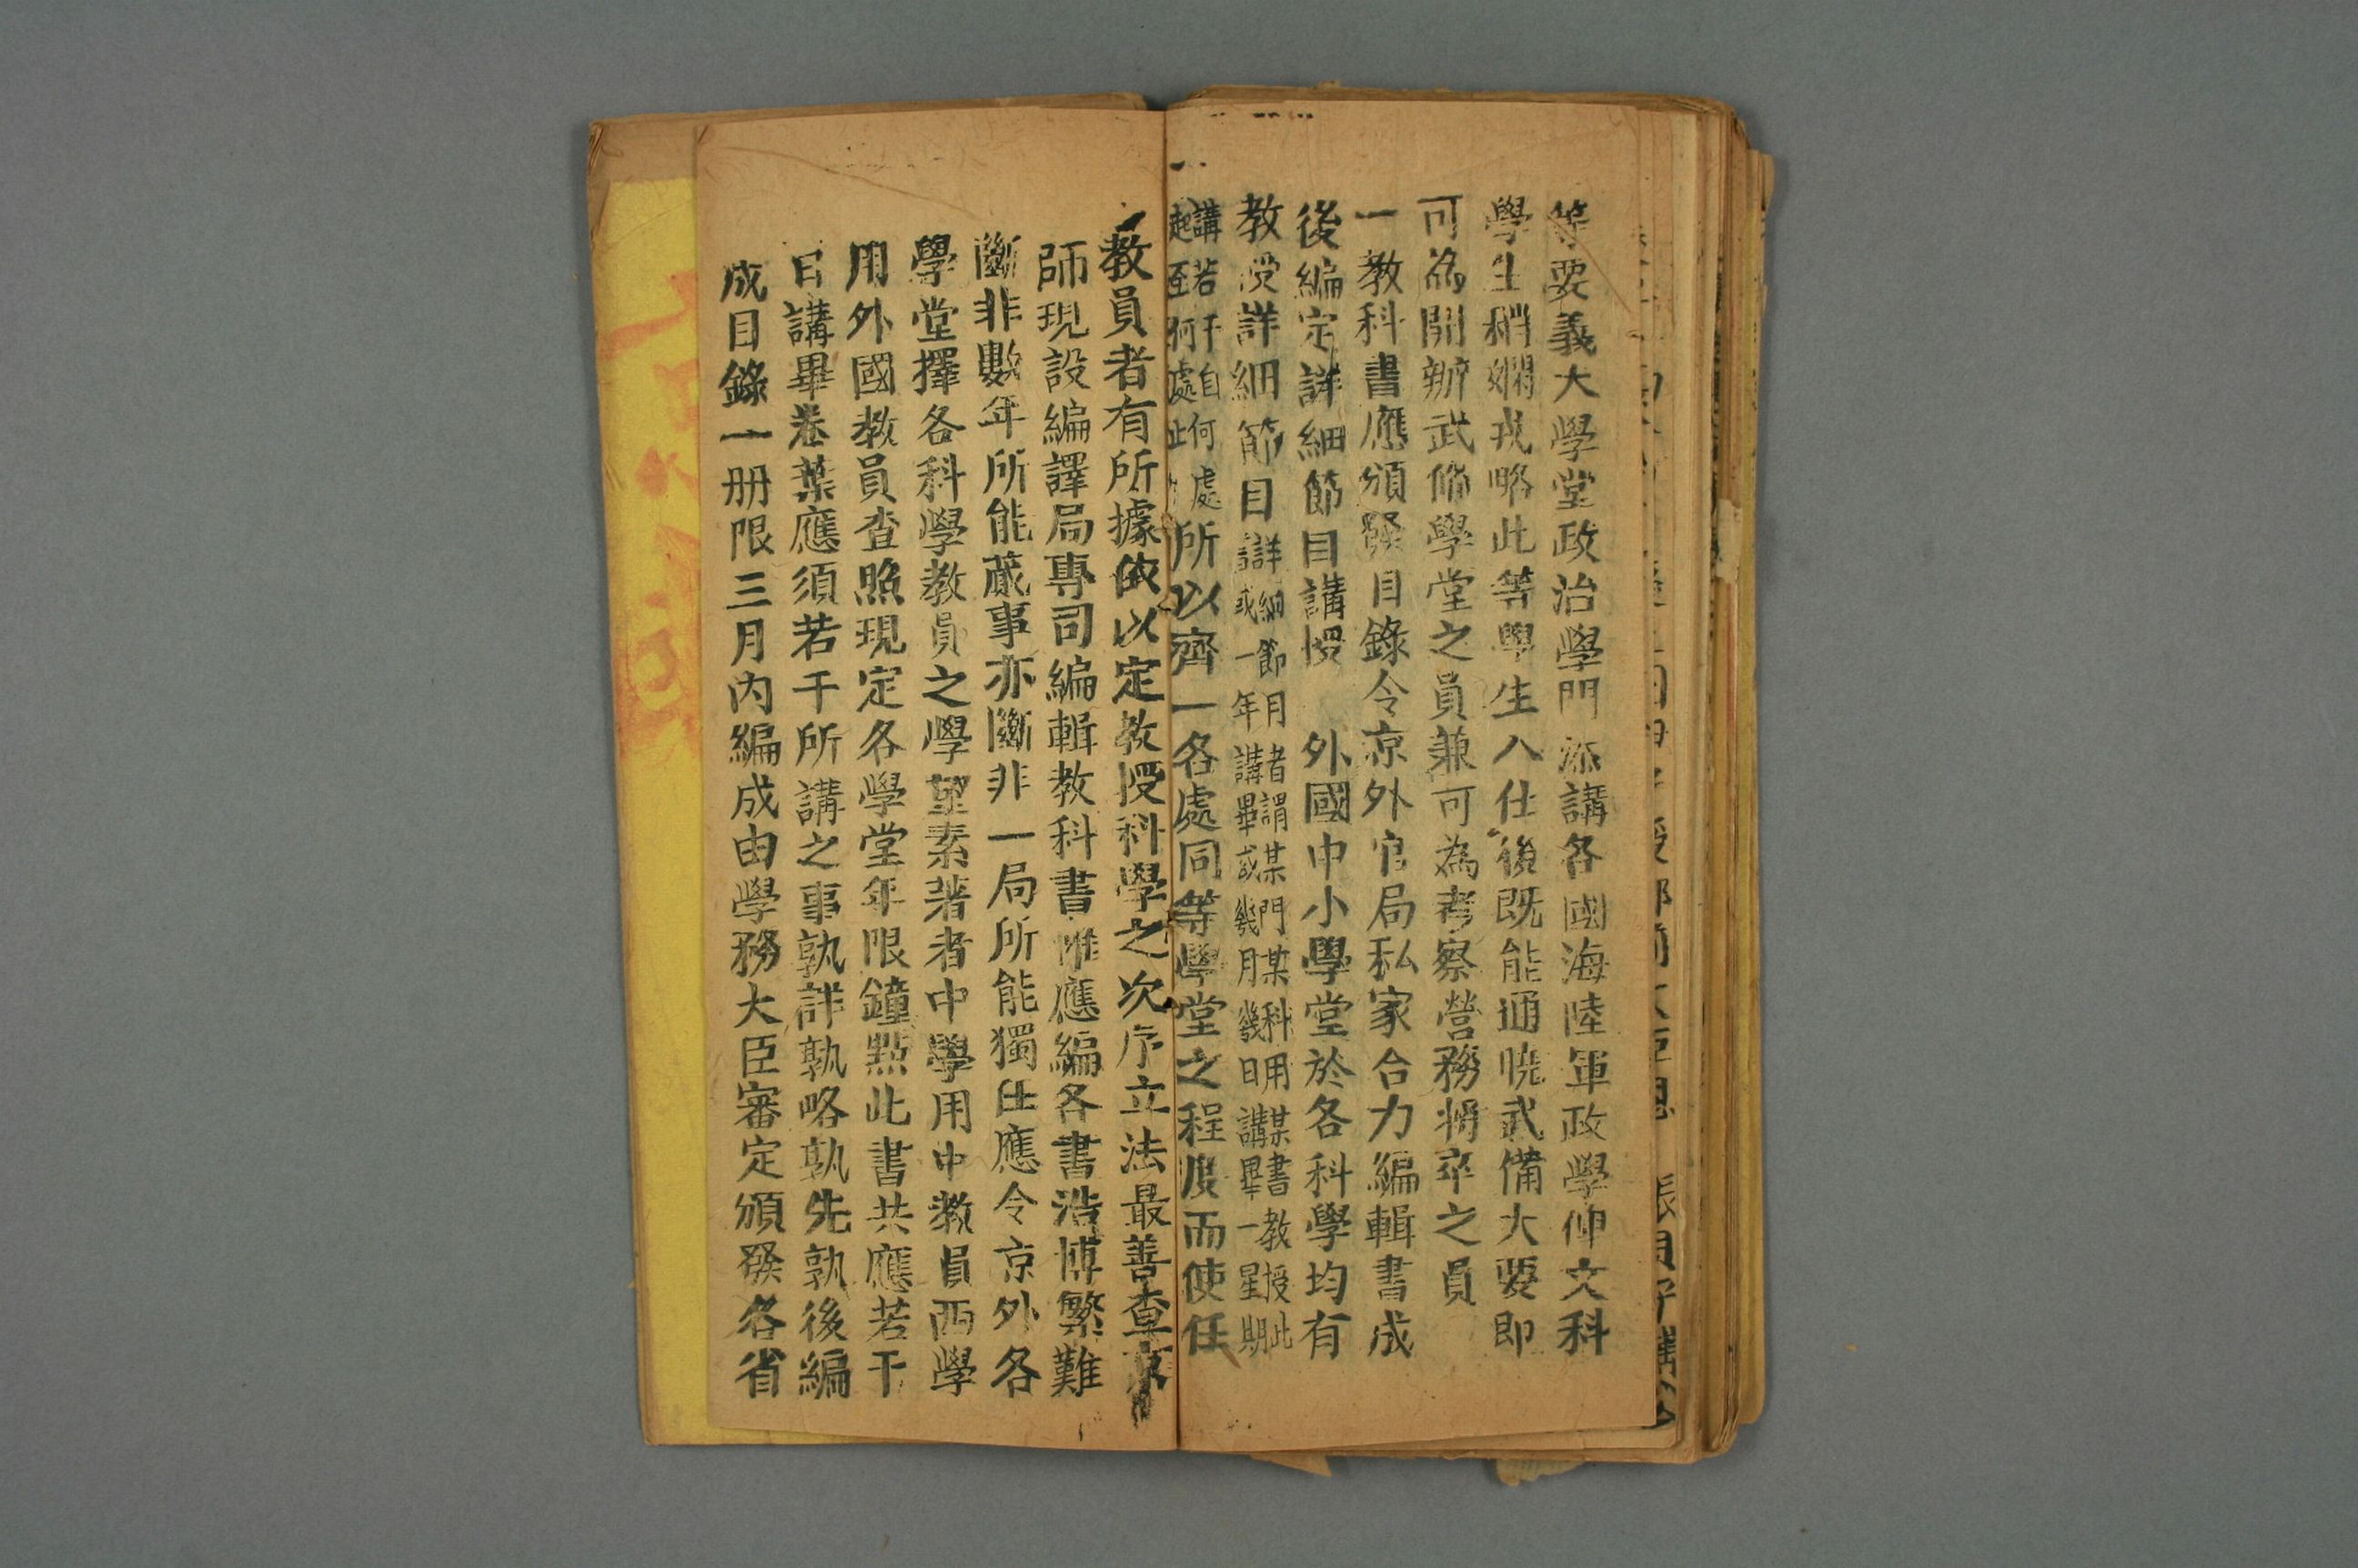 等要義大學堂政治學門添講各國海陸軍政學仰文科
學生稍嫻戎略此等學生入仕後既能通曉武備大要即
可為開辦武備學堂之員兼可為考察營務將卒之員
一教科書應頒發目錄令京外官局私家合力編輯書成
後編定詳細節目講授 外國中小學堂於各科學均有
教授詳細節目詳細節目者謂某門某科用某書教授此
書或一年講畢或幾月幾日講畢一星期
講若干自何處
起至何處止
所以齊一各處同等學堂之程度而使任
教員者有所據依以定教授科學之次序立法最善查京
師現設編譯局專司編輯教科書惟應編各書浩博繁難
斷非數年所能蕆事亦斷非一局所能獨任應令京外各
學堂擇各科學教員之學望素著者中學用中教員西學
用外國教員查照現定各學堂年限鐘點此書共應若干
日講畢卷葉應須若干所講之事孰詳孰略孰先孰後編
成目錄一册限三月內編成由學務大臣審定頒發各省